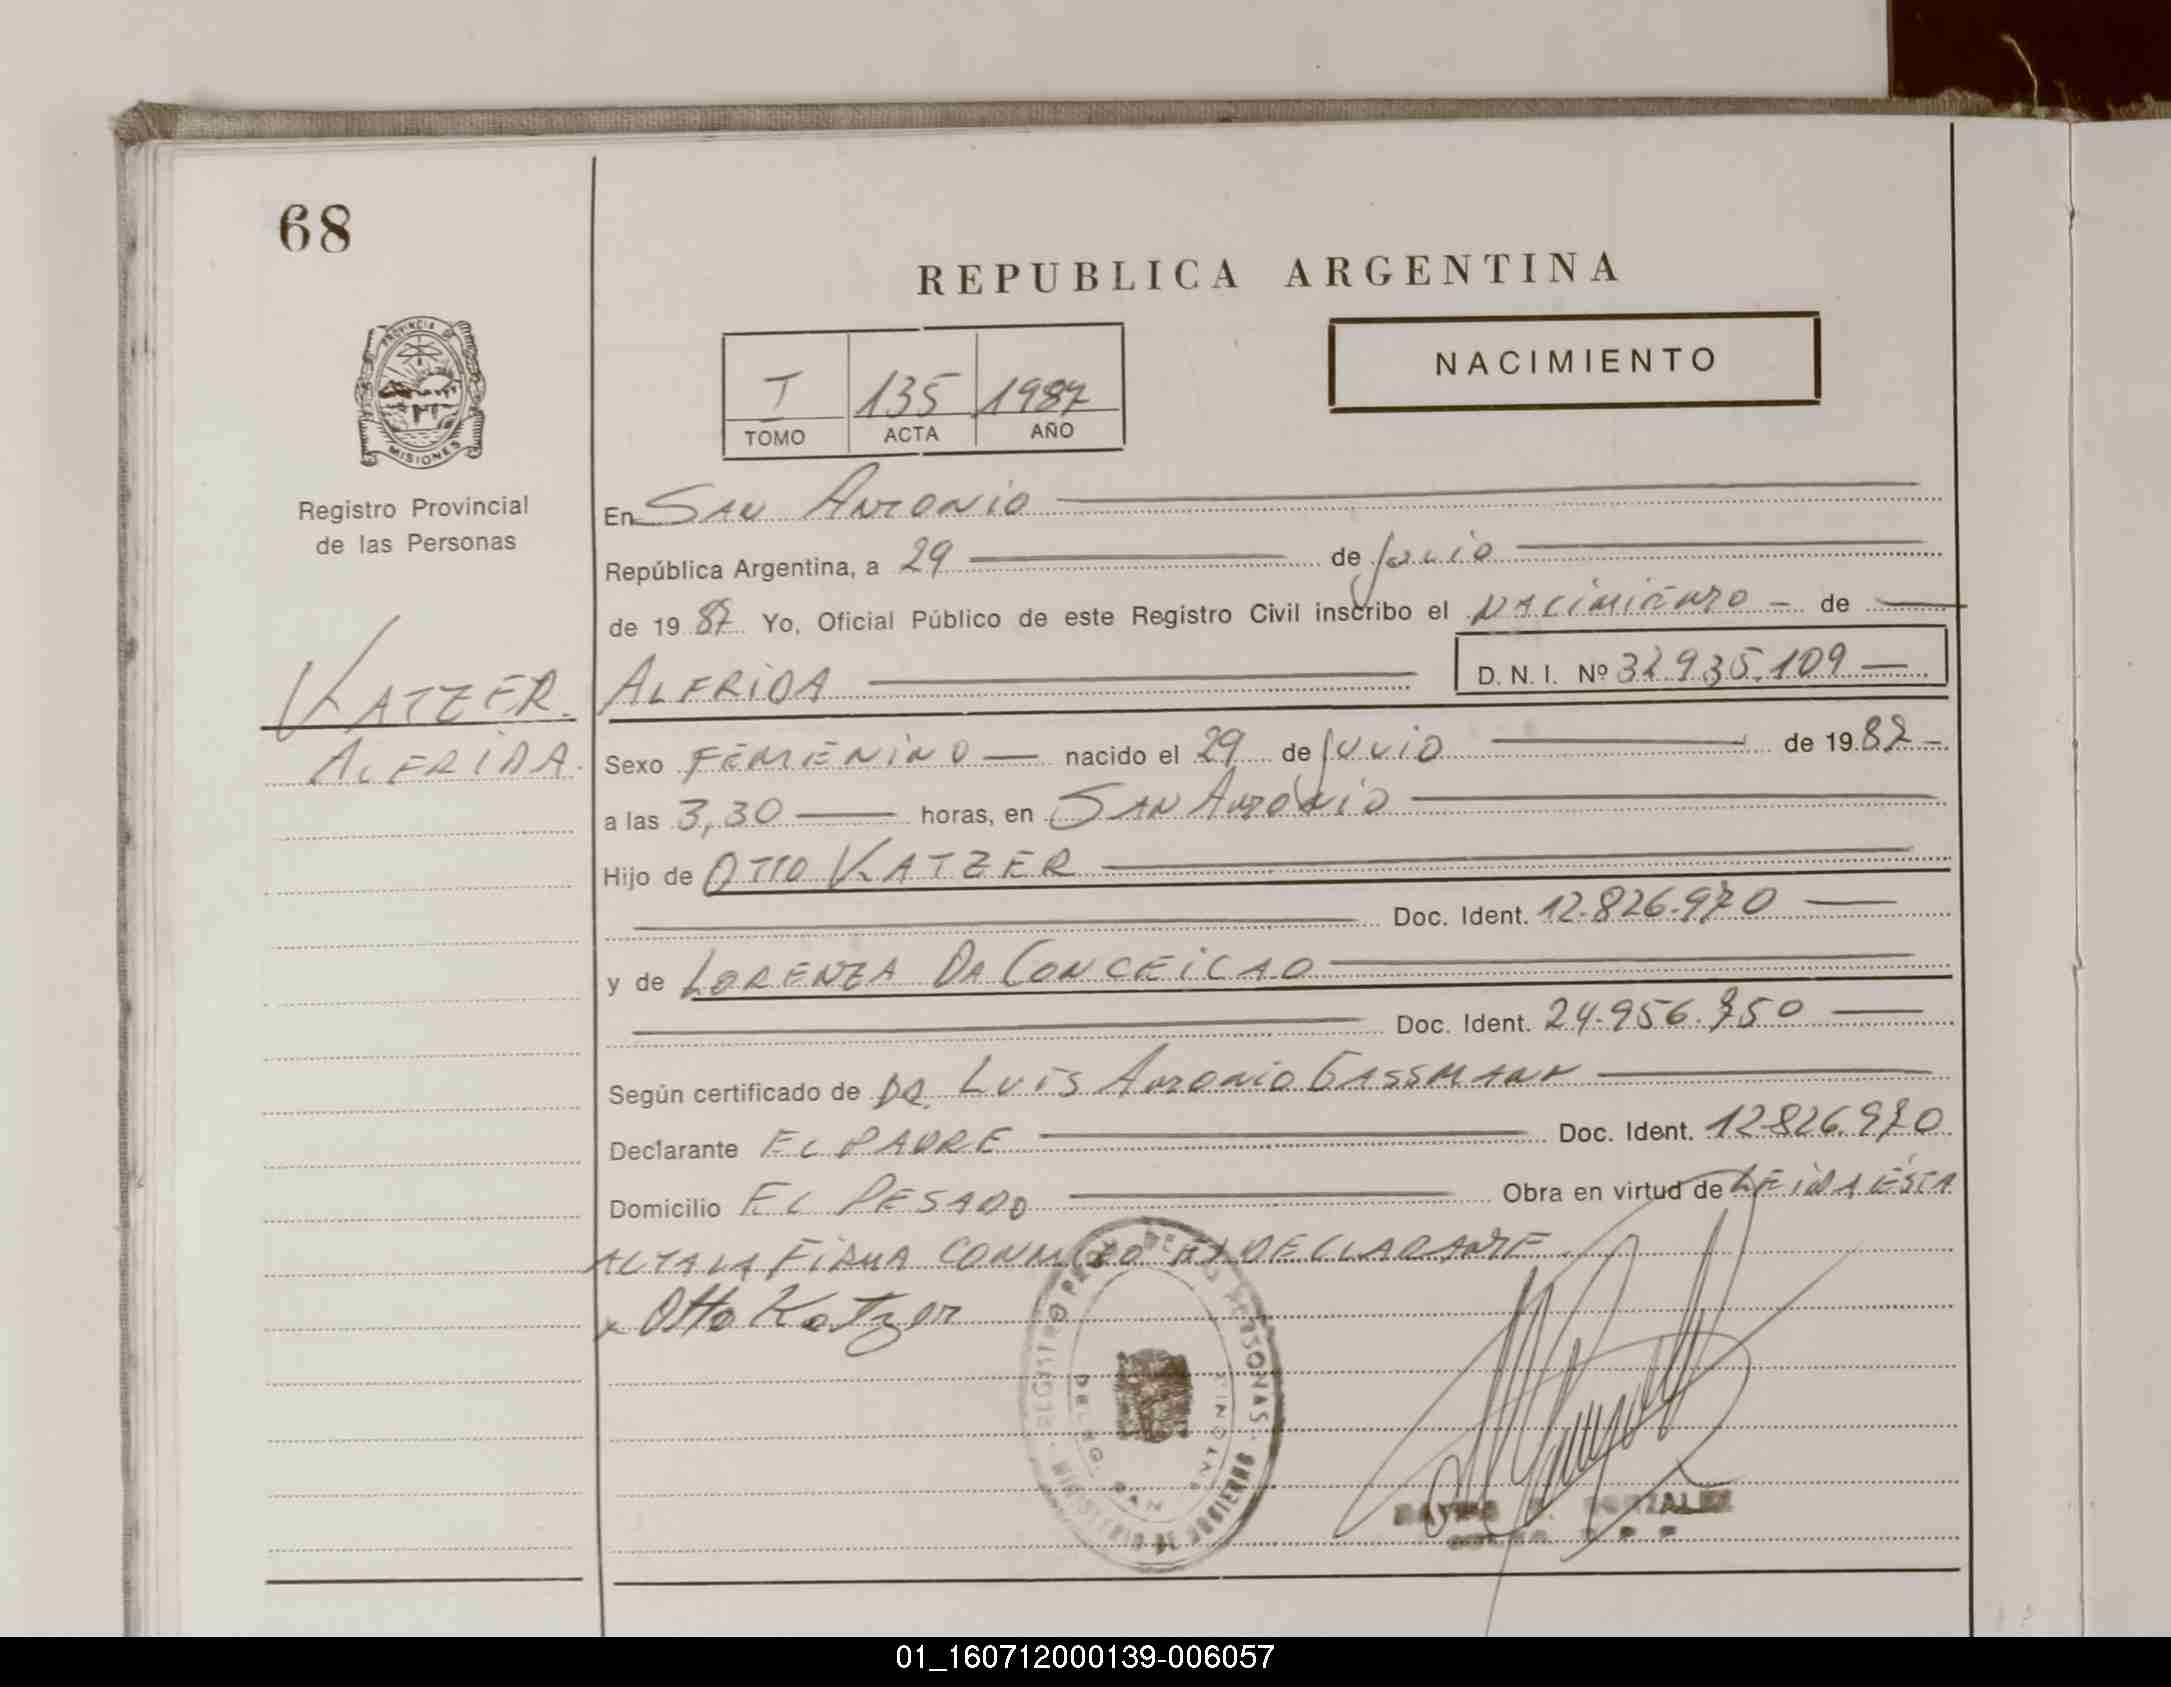 68
REPUBLICA ARGENTINA
NACIMIENTO
T 135 1987
TOMO ACTA AÑO
PROVINCIA DE
MISIONES
Registro Provincial
de las Personas
KATZER
ALFRIDA
En SAN ANTONIO
República Argentina, a 29 de Julio
de 19 87 Yo, Oficial Público de este Registro Civil inscribo el NACIMIENTO - de
ALFRIDA D. N. I. Nº 32.935.109
Sexo FEMENINO nacido el 29 de JULIO de 19 87 -
a las 3,30 horas, en SAN ANTONIO
Hijo de OTTO KATZER
Doc. Ident. 12.826.970
y de LORENZA DA CONCEICAO
Doc. Ident. 24.956.750
Según certificado de DR. LUIS ANTONIO GASSMANN
Declarante EL PADRE Doc. Ident. 12826.970
Domicilio EL PESADO Obra en virtud de LEIDA ESTA
ACTA LA FIRMA CONMIGO EL DECLARANTE
x Otto Katzer
REGISTRO DE LAS PERSONAS
DELEG. SAN ANTONIO
MINISTERIO DE GOBIERNO
GONZALEZ
01_160712000139-006057